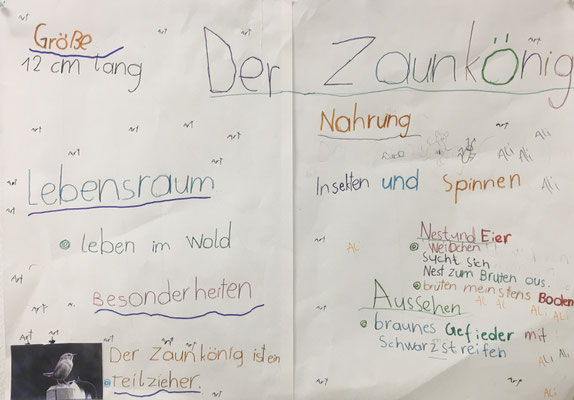 Der Zaunkönig
Größe
12 cm lang
Nahrung
Insekten und Spinnen
Lebensraum
leben im Wald
Nest und Eier
Weibchen
sucht sich
Nest zum Brüten aus.
brüten meinstens Boden
Besonderheiten
Der Zaunkönig ist ein
Teilzieher.
Aussehen
braunes Gefieder mit
Schwarzstreifen
Ali
Ali
Ali
Ali